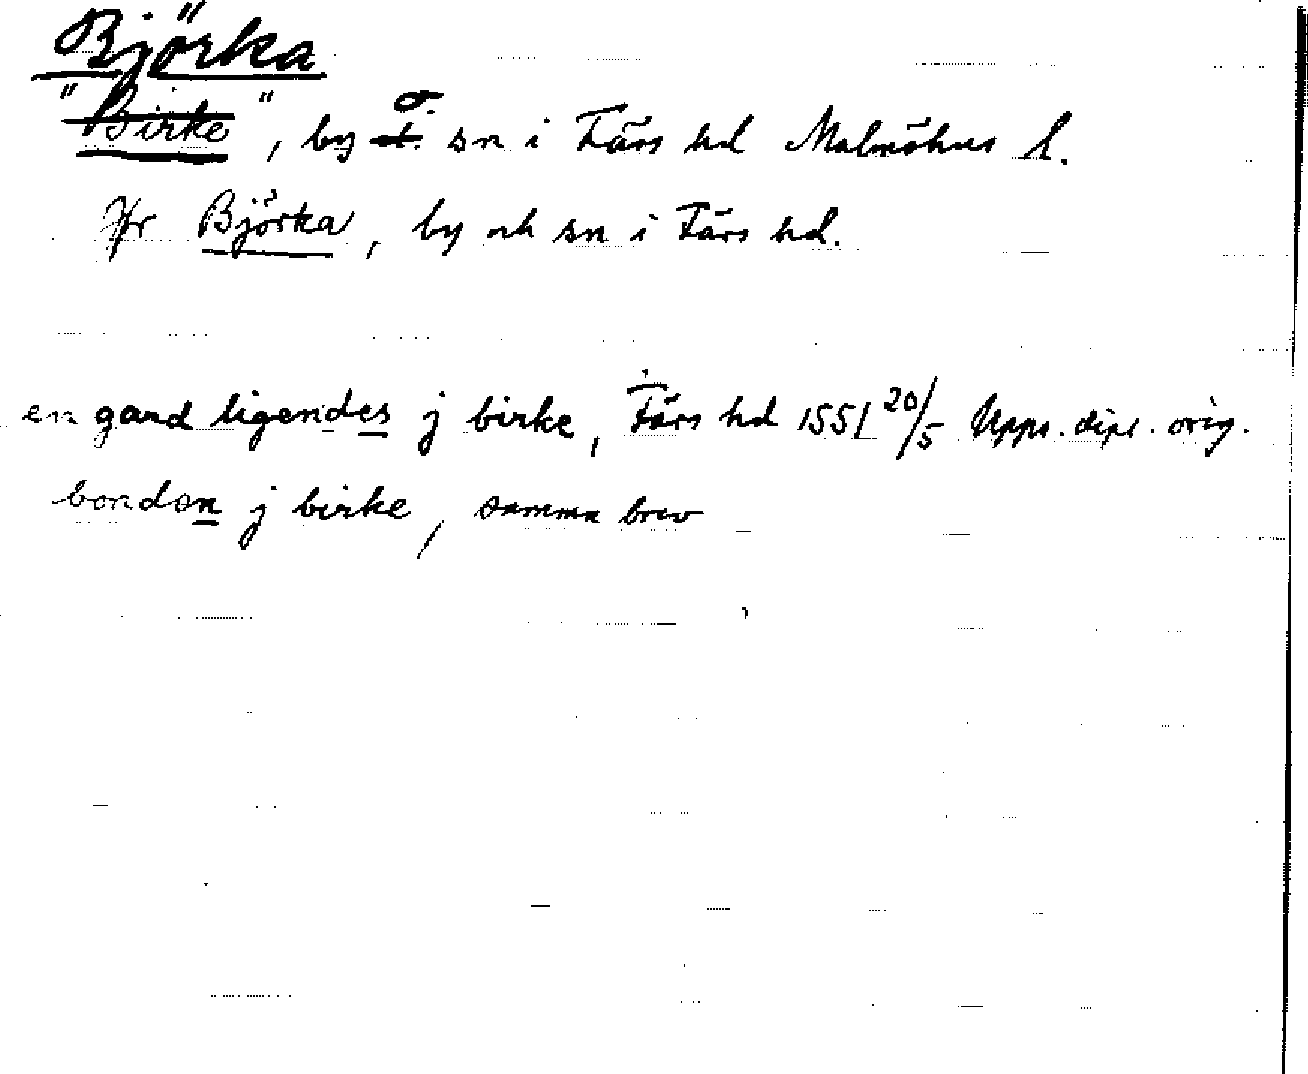 Björka
"Birke", by o. sn i Färs hd Malmöhus l.
Jfr Björka, by och sn i Färs hd.
en gard ligendes j birke, Färs hd 1551 20/5 Upps. dipl. orig.
bonden j birke, samma brev